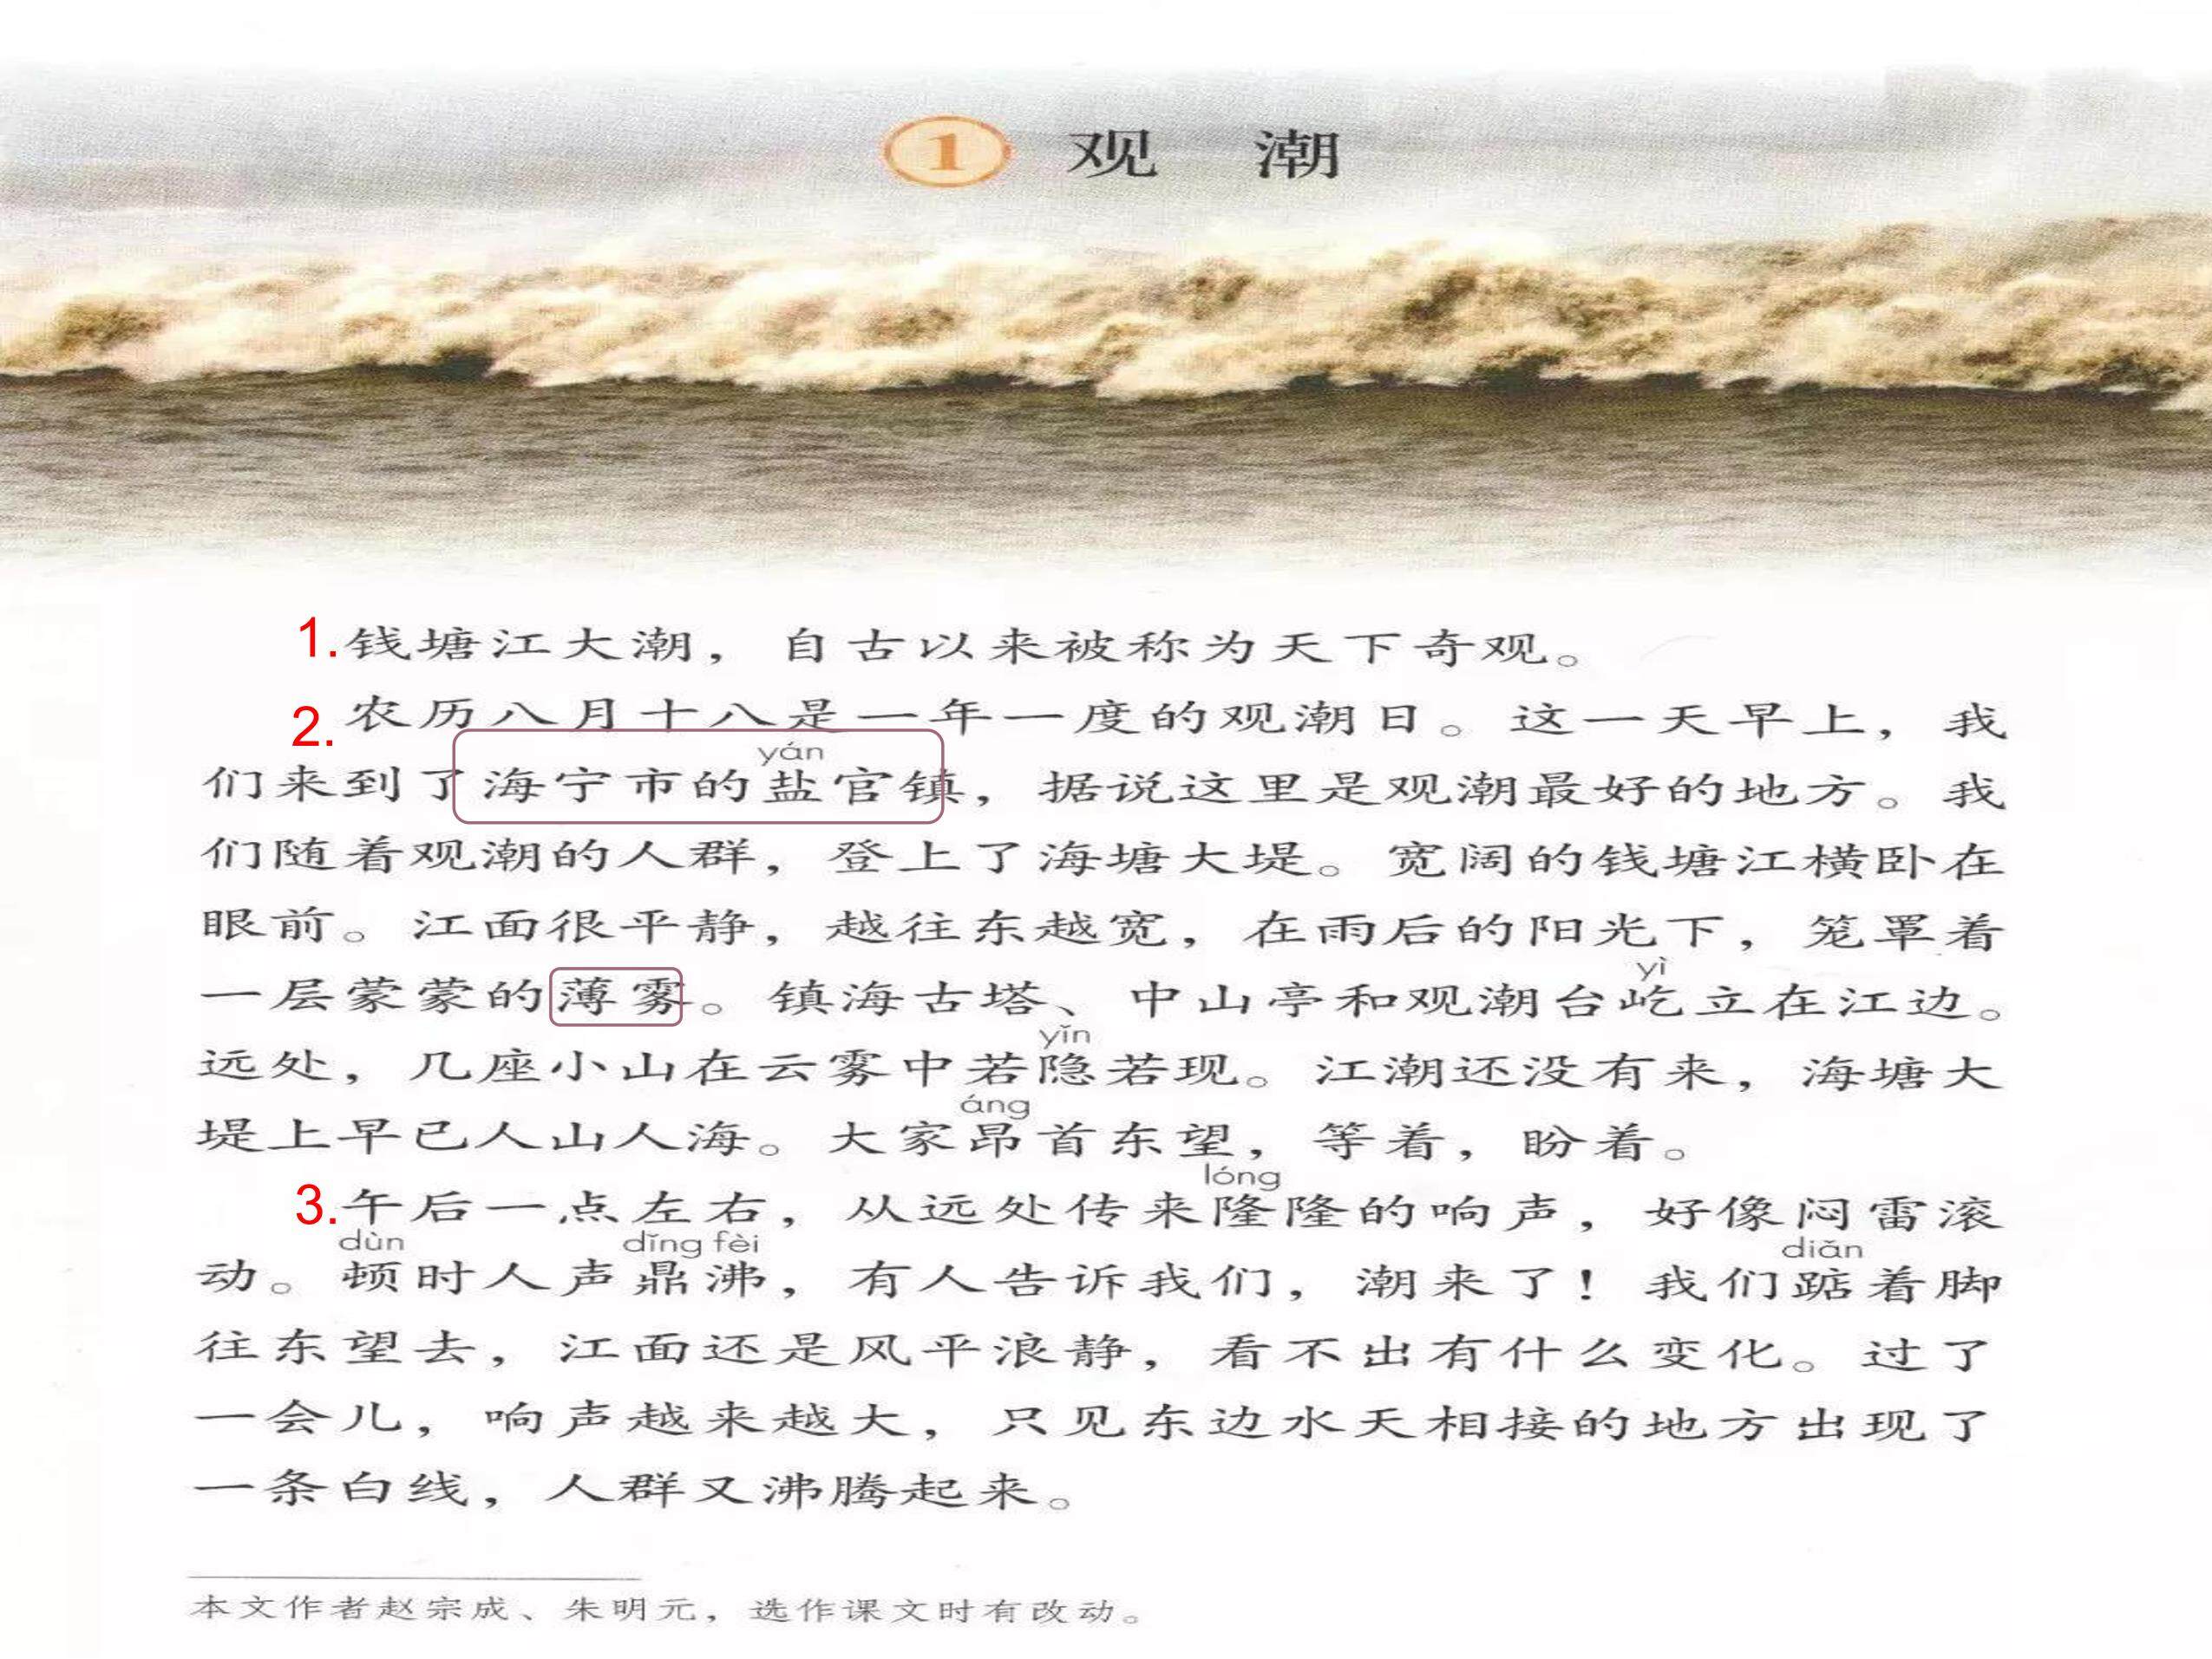 1 观 潮
1.钱塘江大潮，自古以来被称为天下奇观。
2.农历八月十八是一年一度的观潮日。这一天早上，我
yán
们来到了海宁市的盐官镇，据说这里是观潮最好的地方。我
们随着观潮的人群，登上了海塘大堤。宽阔的钱塘江横卧在
眼前。江面很平静，越往东越宽，在雨后的阳光下，笼罩着
yì
一层蒙蒙的薄雾。镇海古塔、中山亭和观潮台屹立在江边。
yǐn
远处，几座小山在云雾中若隐若现。江潮还没有来，海塘大
áng
堤上早已人山人海。大家昂首东望，等着，盼着。
lóng
3.午后一点左右，从远处传来隆隆的响声，好像闷雷滚
dùn dǐng fèi diǎn
动。顿时人声鼎沸，有人告诉我们，潮来了！我们踮着脚
往东望去，江面还是风平浪静，看不出有什么变化。过了
一会儿，响声越来越大，只见东边水天相接的地方出现了
一条白线，人群又沸腾起来。
本文作者赵宗成、朱明元，选作课文时有改动。